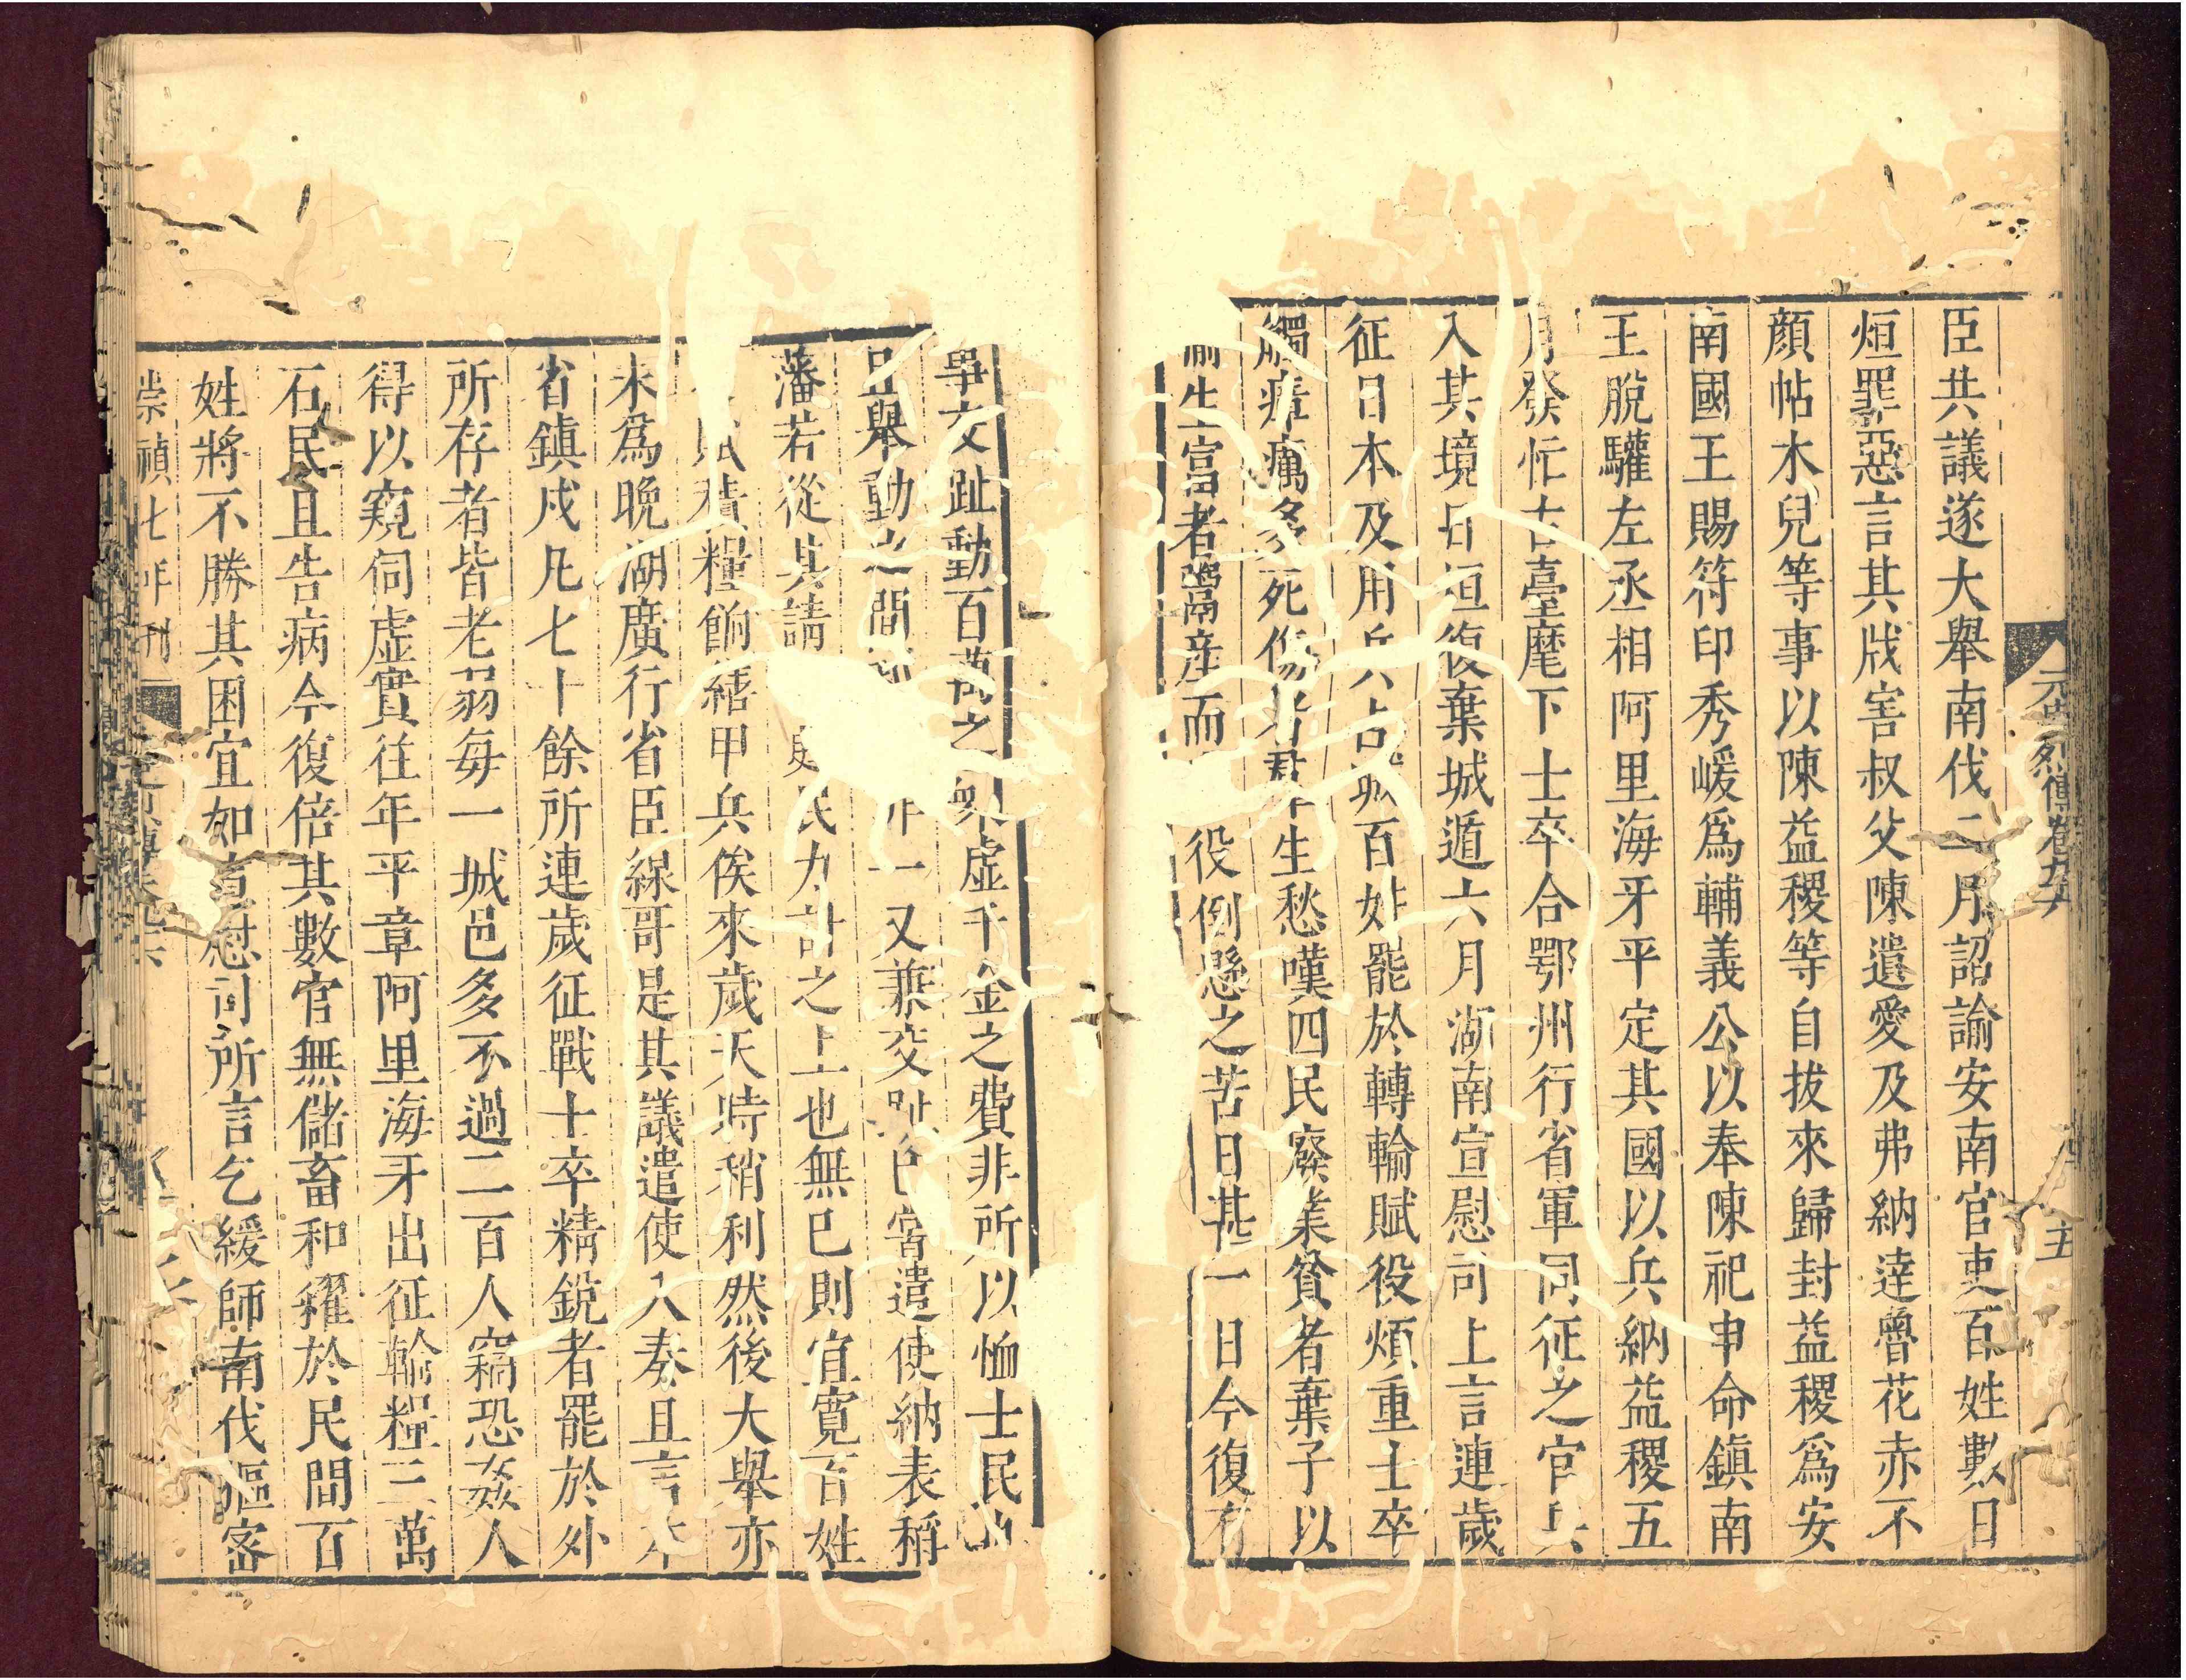 臣共議遂大舉南伐二月詔諭安南官吏百姓數日
烜罪惡言其戕害叔父陳遺愛及弗納達魯花赤不
顏帖木兒等事以陳益稷等自拔來歸封益稷爲安
南國王賜符印秀嵈爲輔義公以奉陳祀申命鎮南
王脫驩左丞相阿里海牙平定其國以兵納益稷五
月發忙古臺麾下士卒合鄂州行省軍同征之官兵
入其境日烜復棄城遁六月湖南宣慰司上言連歲
征日本及用兵占城百姓罷於轉輸賦役煩重士卒
觸瘴癘多死傷者群生愁嘆四民廢業貧者棄子以
偷生富者鬻產而役倒懸之苦日甚一日今復有
事交趾動百萬之眾虛千金之費非所以恤士民也
且舉動之間非一又兼交趾已嘗遣使納表稱
藩若從其請民力計之上也無已則宜寬百姓
賦積糧餉繕甲兵俟來歲天時稍利然後大舉亦
未爲晚湖廣行省臣線哥是其議遣使入奏且言本
省鎮戍凡七十餘所連歲征戰士卒精銳者罷於外
所存者皆老弱每一城邑多不過二百人竊恐姦人
得以窺伺虛實往年平章阿里海牙出征輸糧三萬
石民且告病今復倍其數官無儲畜和糴於民間百
姓將不勝其困宜如宣慰司所言乞緩師南伐樞密
崇禎七年刊